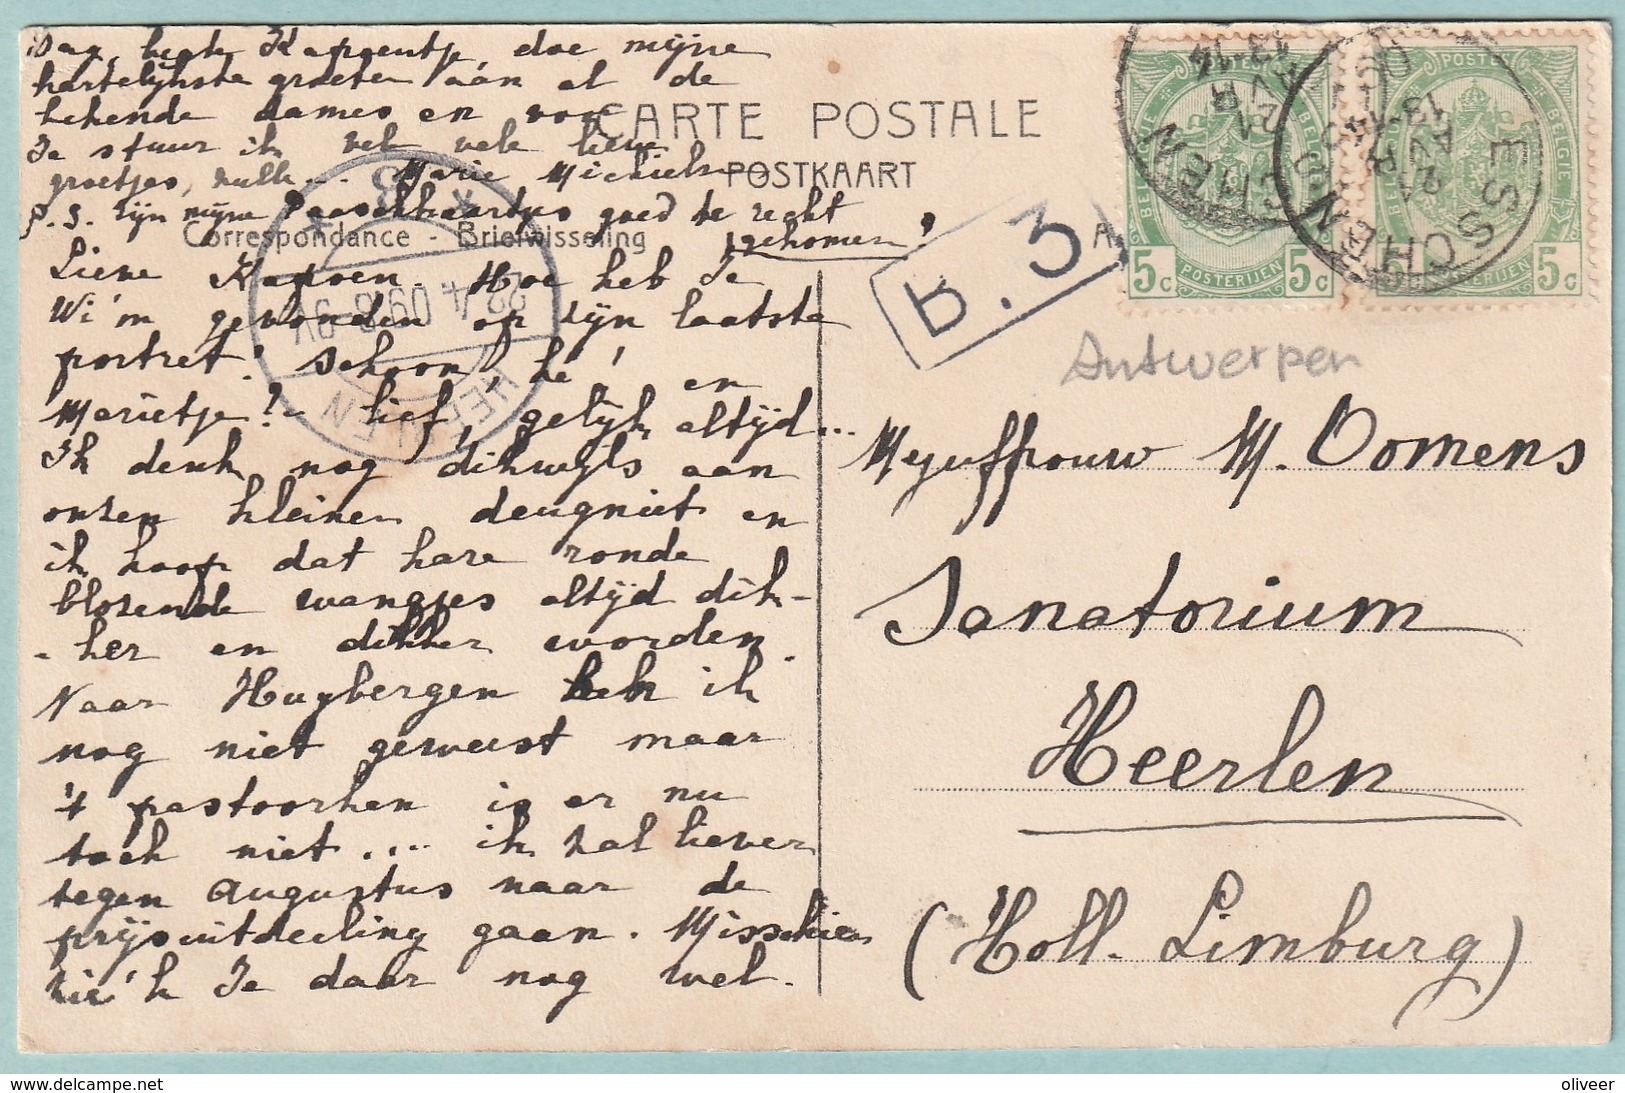 Dag, beste Kapoentje doe mijne
hartelijkste groeten áán al de
bekende dames en voor
Je stuur ik vele vele lieve
groetjes, Marie Michiels
P.S. Zijn mijne Paaschkaartjes goed te recht
gekomen?
CARTE POSTALE
POSTKAART
Correspondance - Briefwisseling
Lieve Kapoen. Hoe heb Je
Wi'm gevonden op zijn laatste
portret? Schoon, hé! en
Marietje? - lief, gelijk altijd...
Ik denk nog dikwijls aan
onzen kleinen deugniet en
ik hoop dat hare ronde
blozende wangjes altijd dik-
-ker en dikker worden.
Naar Huybergen heb ik
nog niet geweest maar
't pastoorken is er nu
toch niet .... ik zal liever
tegen Augustus naar de
prijsuitdeeling gaan. Misschien
zie'k Je daar nog wel.
B. 3
Antwerpen
Mejuffrouw M. Oomens
Sanatorium
Heerlen
(Holl. Limburg)
POSTERIJEN
5c 5c
POSTE
BELGIE
POSTERIJEN
5c
ESSCHEN
21 AVR
13-14
HEERLEN
22.4.09
oliveer